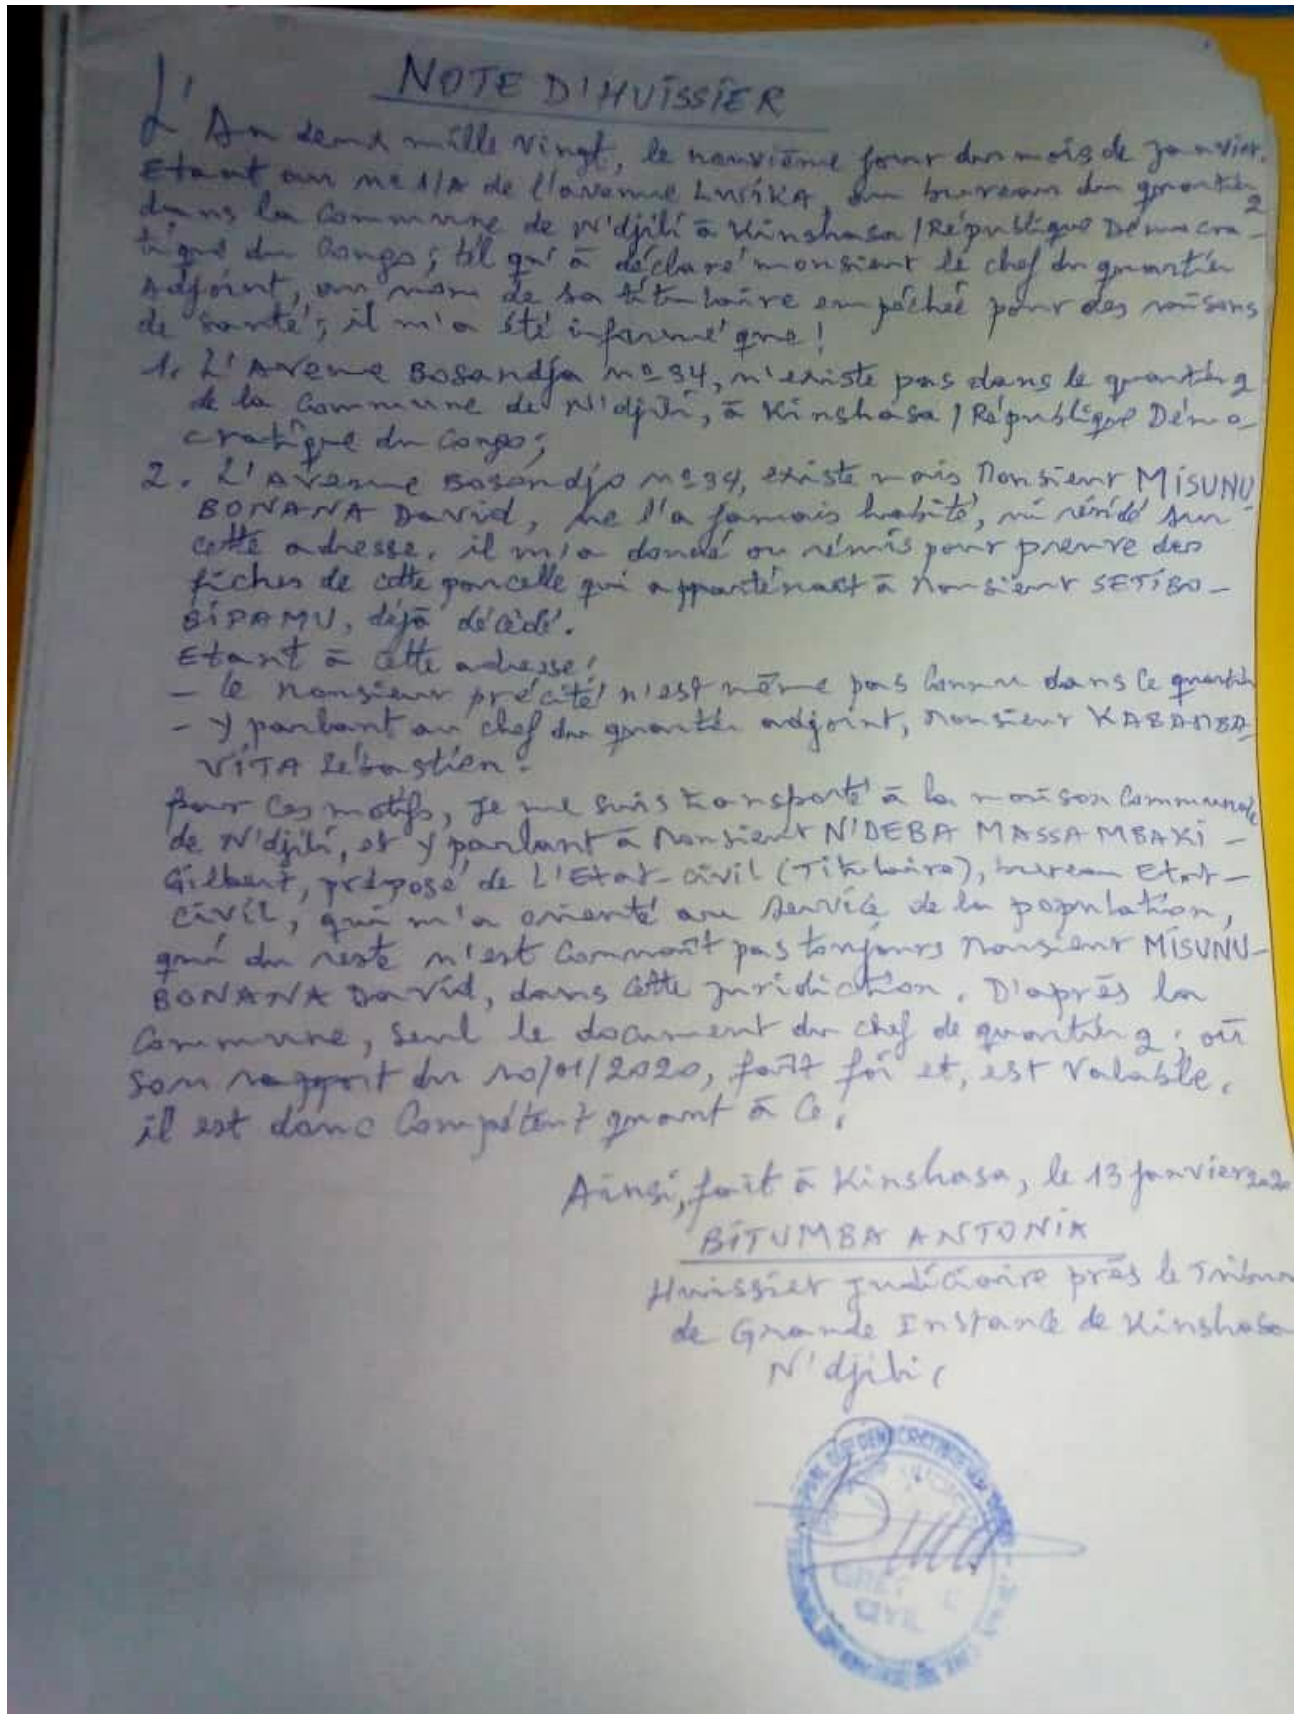 NOTE D'HUISSIER
L'An deux mille vingt, le neuvième jour du mois de Janvier.
Etant au n° 1/A de l'avenue LUSIKA, au bureau du quartier 2
dans la Commune de N'djili à Kinshasa / République Démocra-
tique du Congo; tel qu'à déclaré monsieur le chef du quartier
Adjoint, au nom de sa titulaire empêchée pour des raisons
de santé; il m'a été informé que!
1. L'Avenue Bosandja n° 34, n'existe pas dans le quartier 2
de la Commune de N'djili, à Kinshasa / République Démo-
cratique du Congo;
2. L'Avenue Bosandjo n° 34, existe mais Monsieur MISUNU
BONANA David, ne l'a jamais habité, ni résidé sur
cette adresse. il m'a donné ou rémis pour preuve des
fiches de cette parcelle qui appartenait à Monsieur SETIBO-
BIPAMU, déjà décédé.
Etant à cette adresse!
- le Monsieur précité n'est même pas connu dans ce quartier
- y parlant au chef du quartier adjoint, Monsieur KABAMBA-
VITA Sébastien.
Pour ces motifs, je me suis transporté à la maison Communale
de N'djili, et y parlant à Monsieur N'DEBA MASSAMBAKI-
Gilbert, préposé de L'Etat-civil (Titulaire), bureau Etat-
civil, qui m'a orienté au service de la population,
qui du reste n'est connaît pas toujours Monsieur MISUNU-
BONANA David, dans cette juridiction. D'après la
Commune, seul le document du chef de quartier 2; où
son rapport du 10/01/2020, fait foi et, est valable.
il est donc Compétent quant à ce.
Ainsi, fait à Kinshasa, le 13 janvier 2020
BITUMBA ANTONIA
Huissier judiciaire près le Tribun
de Grande Instance de Kinshasa
N'djili
CIVIL